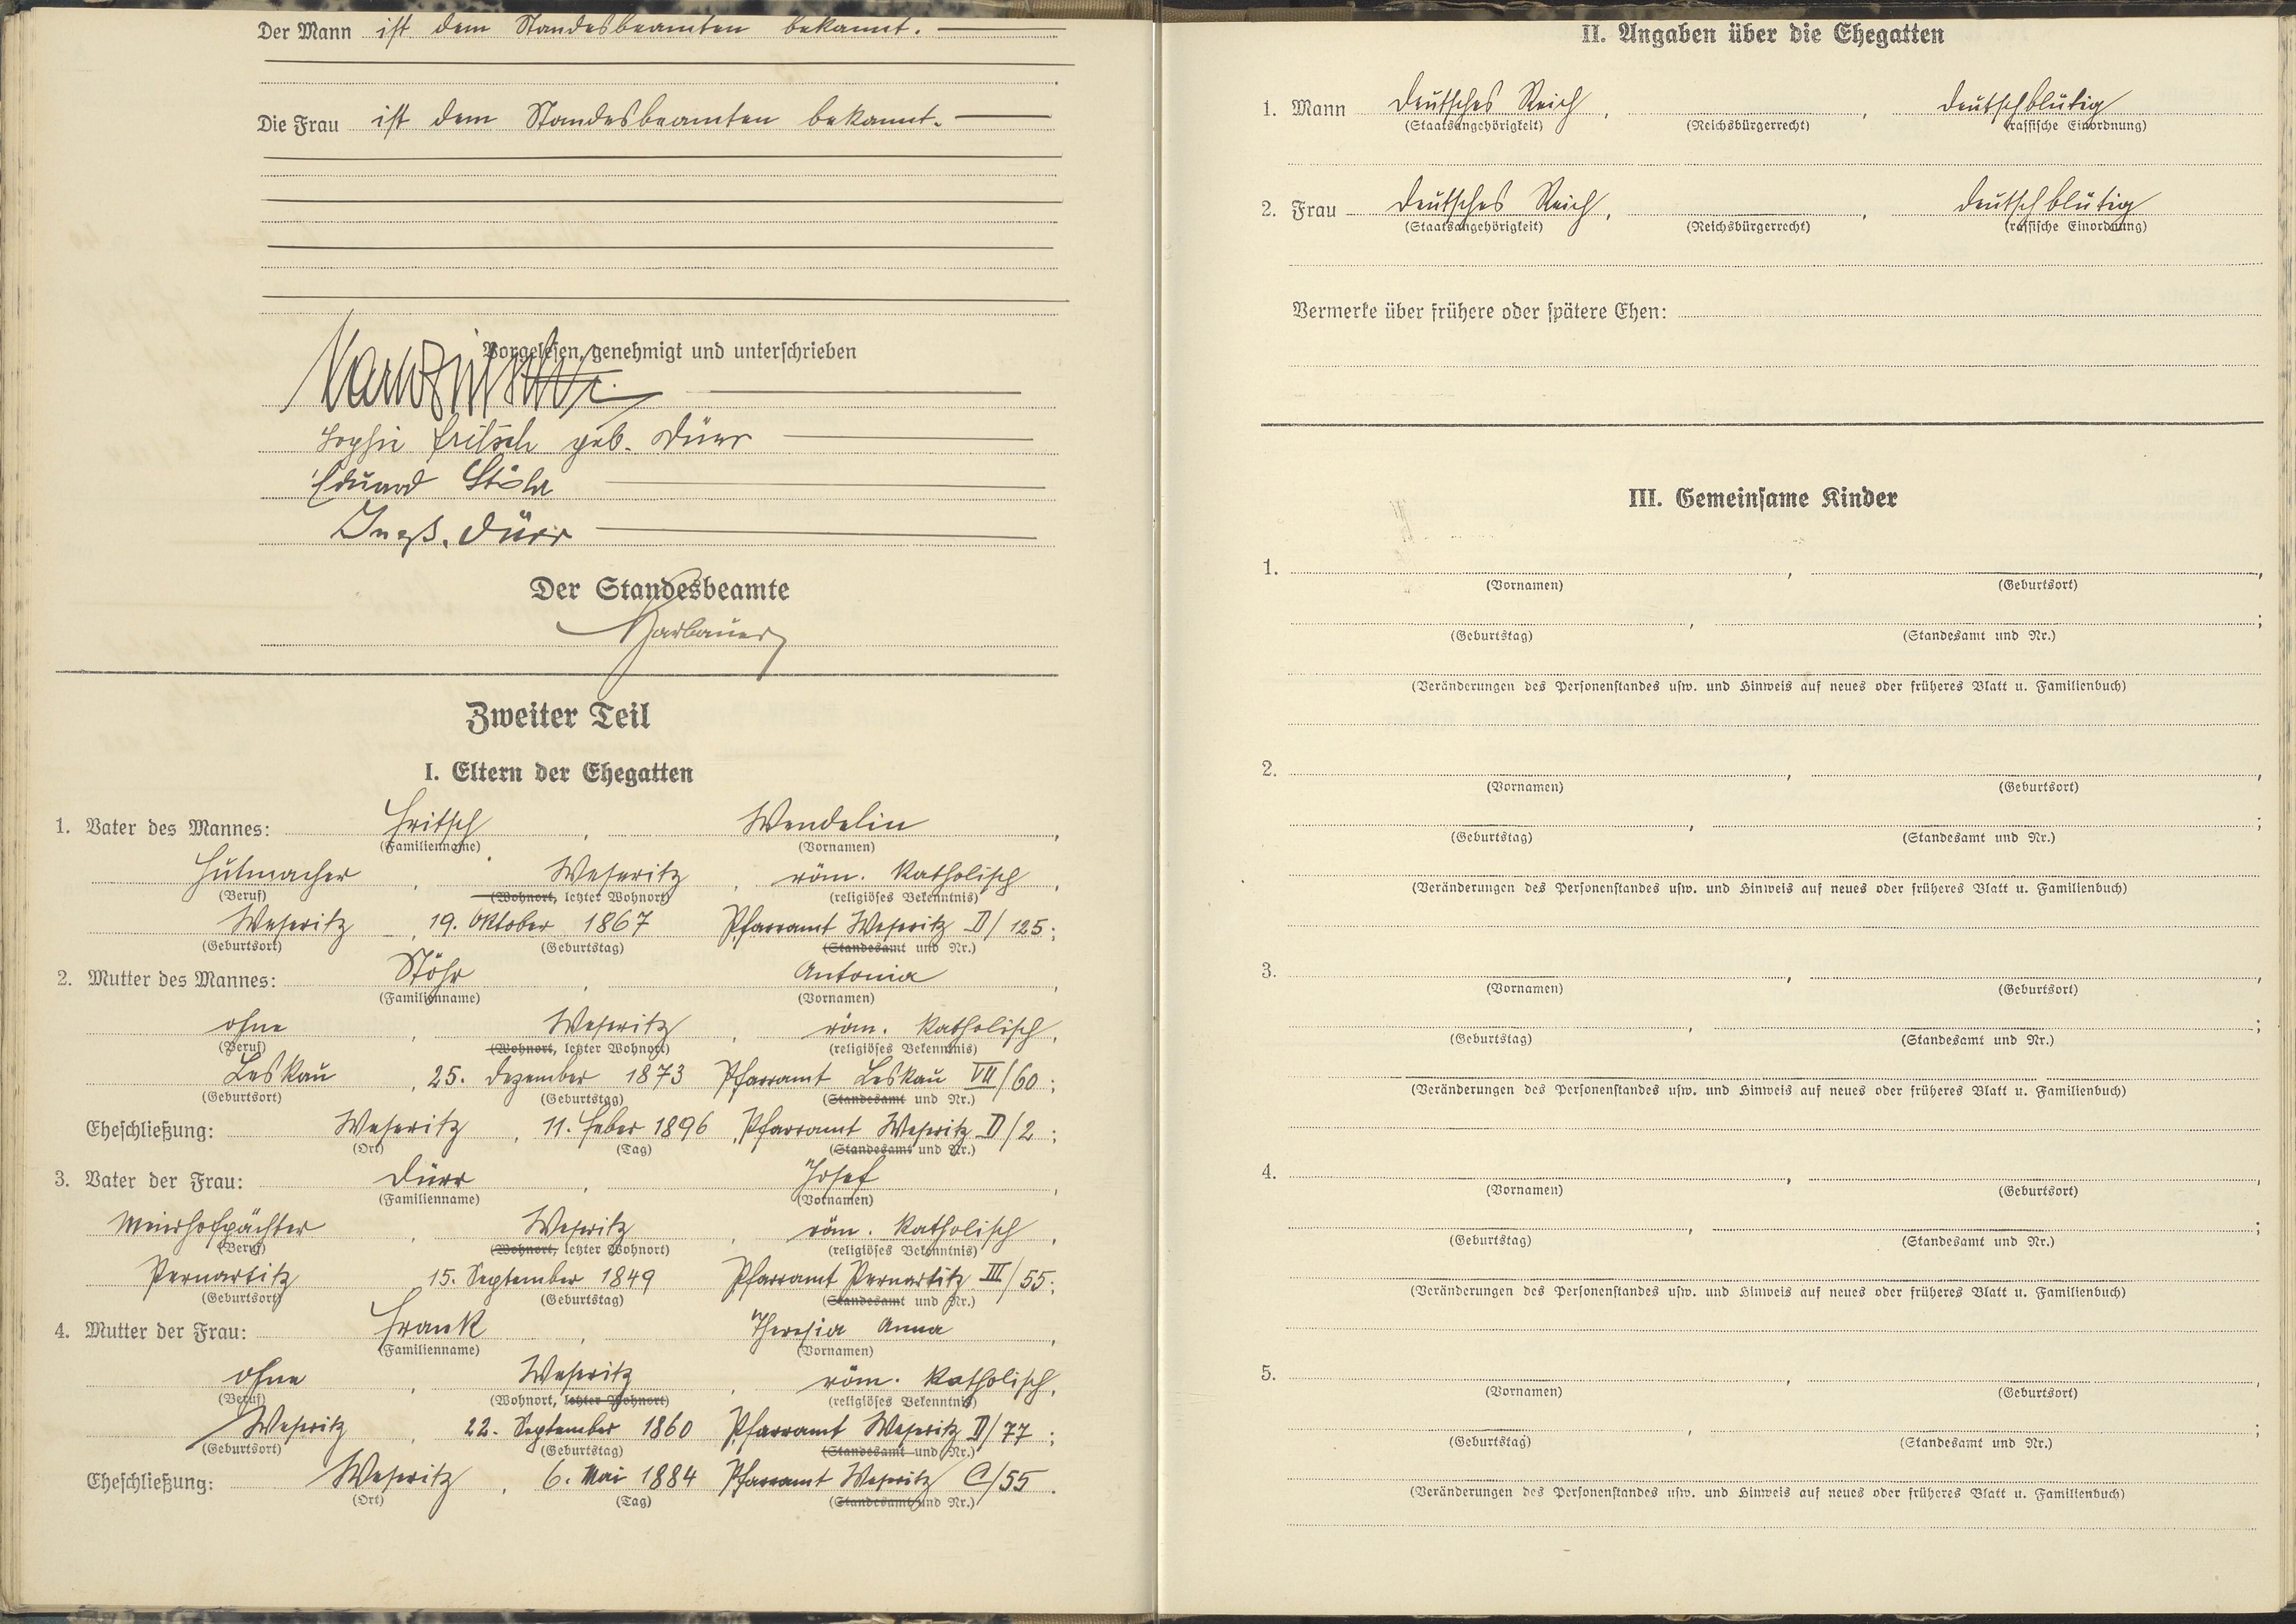 Der Mann ist dem Standesbeamten bekannt.
Die Frau ist dem Standesbeamten bekannt.
Vorgelesen, genehmigt und unterschrieben
Sophie Fritsch geb. Dürr
Eduard Stöhr
Dürr
Der Standesbeamte
Zweiter Teil
I. Eltern der Ehegatten
1. Vater des Mannes: Fritsch, Wendelin,
(Familienname) (Vornamen)
Hutmacher, Weseritz, röm. katholisch,
(Beruf) (Wohnort, letzter Wohnort) (religiöses Bekenntnis)
Weseritz, 19. Oktober 1867 Pfarramt Weseritz D/125;
(Geburtsort) (Geburtstag) (Standesamt und Nr.)
2. Mutter des Mannes: Stöhr, Antonia,
(Familienname) (Vornamen)
ohne, Weseritz, röm. katholisch,
(Beruf) (Wohnort, letzter Wohnort) (religiöses Bekenntnis)
Leskau, 25. Dezember 1873 Pfarramt Leskau VII/60;
(Geburtsort) (Geburtstag) (Standesamt und Nr.)
Eheschließung: Weseritz, 11. Feber 1896, Pfarramt Weseritz D/2;
(Ort) (Tag) (Standesamt und Nr.)
3. Vater der Frau: Dürr, Josef,
(Familienname) (Vornamen)
Meierhofpächter, Weseritz, röm. katholisch,
(Beruf) (Wohnort, letzter Wohnort) (religiöses Bekenntnis)
Pernartitz 15. September 1849 Pfarramt Pernartitz III/55;
(Geburtsort) (Geburtstag) (Standesamt und Nr.)
4. Mutter der Frau: Frank, Theresia Anna,
(Familienname) (Vornamen)
ohne, Weseritz, röm. katholisch,
(Beruf) (Wohnort, letzter Wohnort) (religiöses Bekenntnis)
Weseritz, 22. September 1860 Pfarramt Weseritz D/77;
(Geburtsort) (Geburtstag) (Standesamt und Nr.)
Eheschließung: Weseritz, 6. Mai 1884 Pfarramt Weseritz C/55.
(Ort) (Tag) (Standesamt und Nr.)
II. Angaben über die Ehegatten
1. Mann Deutsches Reich, , deutschblütig
(Staatsangehörigkeit) (Reichsbürgerrecht) (rassische Einordnung)
2. Frau Deutsches Reich, , deutschblütig
(Staatsangehörigkeit) (Reichsbürgerrecht) (rassische Einordnung)
Vermerke über frühere oder spätere Ehen:
III. Gemeinsame Kinder
1. , ,
(Vornamen) (Geburtsort)
, ;
(Geburtstag) (Standesamt und Nr.)
(Veränderungen des Personenstandes usw. und Hinweis auf neues oder früheres Blatt u. Familienbuch)
2. , ,
(Vornamen) (Geburtsort)
, ;
(Geburtstag) (Standesamt und Nr.)
(Veränderungen des Personenstandes usw. und Hinweis auf neues oder früheres Blatt u. Familienbuch)
3. , ,
(Vornamen) (Geburtsort)
, ;
(Geburtstag) (Standesamt und Nr.)
(Veränderungen des Personenstandes usw. und Hinweis auf neues oder früheres Blatt u. Familienbuch)
4. , ,
(Vornamen) (Geburtsort)
, ;
(Geburtstag) (Standesamt und Nr.)
(Veränderungen des Personenstandes usw. und Hinweis auf neues oder früheres Blatt u. Familienbuch)
5. , ,
(Vornamen) (Geburtsort)
, ;
(Geburtstag) (Standesamt und Nr.)
(Veränderungen des Personenstandes usw. und Hinweis auf neues oder früheres Blatt u. Familienbuch)